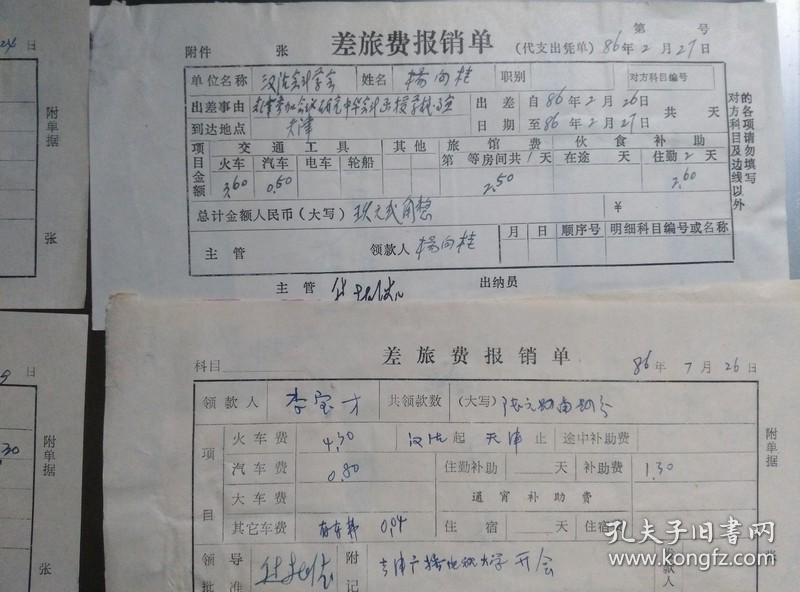 第 号
附件 张 差旅费报销单 (代支出凭单) 86年2月27日
单位名称 汉沽会计学会 姓名 杨向桂 职别 对方科目编号
出差事由 出差 自86年2月26日 共 天
到达地点 天津 日期 至86年2月27日
项目 交通工具 其他 旅馆费 伙食补助
火车 汽车 电车 轮船 第 等房间共1天 在途 天 住勤2天
金额 3.60 0.50 2.50 2.60
总计金额人民币(大写) 玖元贰角整 ¥
主管 领款人 杨向桂 月 日 顺序号 明细科目编号或名称
主管 出纳员
对方科目及边线以外
的各项请勿填写
24日
附单据
张
科目 差旅费报销单 86年7月26日
领款人 李宝才 共领款数 (大写)
项目 火车费 4.30 汉沽起 天津止 途中补助费
汽车费 0.80 住勤补助 天 补助费 1.30
大车费 通宵补助费
其它车费 存车费 0.04 住宿 天 住宿
领导批准 附记 天津广播电视大学开会 款人
附单据
张
9日
.30
附单据
张
孔夫子旧书网
www.kongfz.com